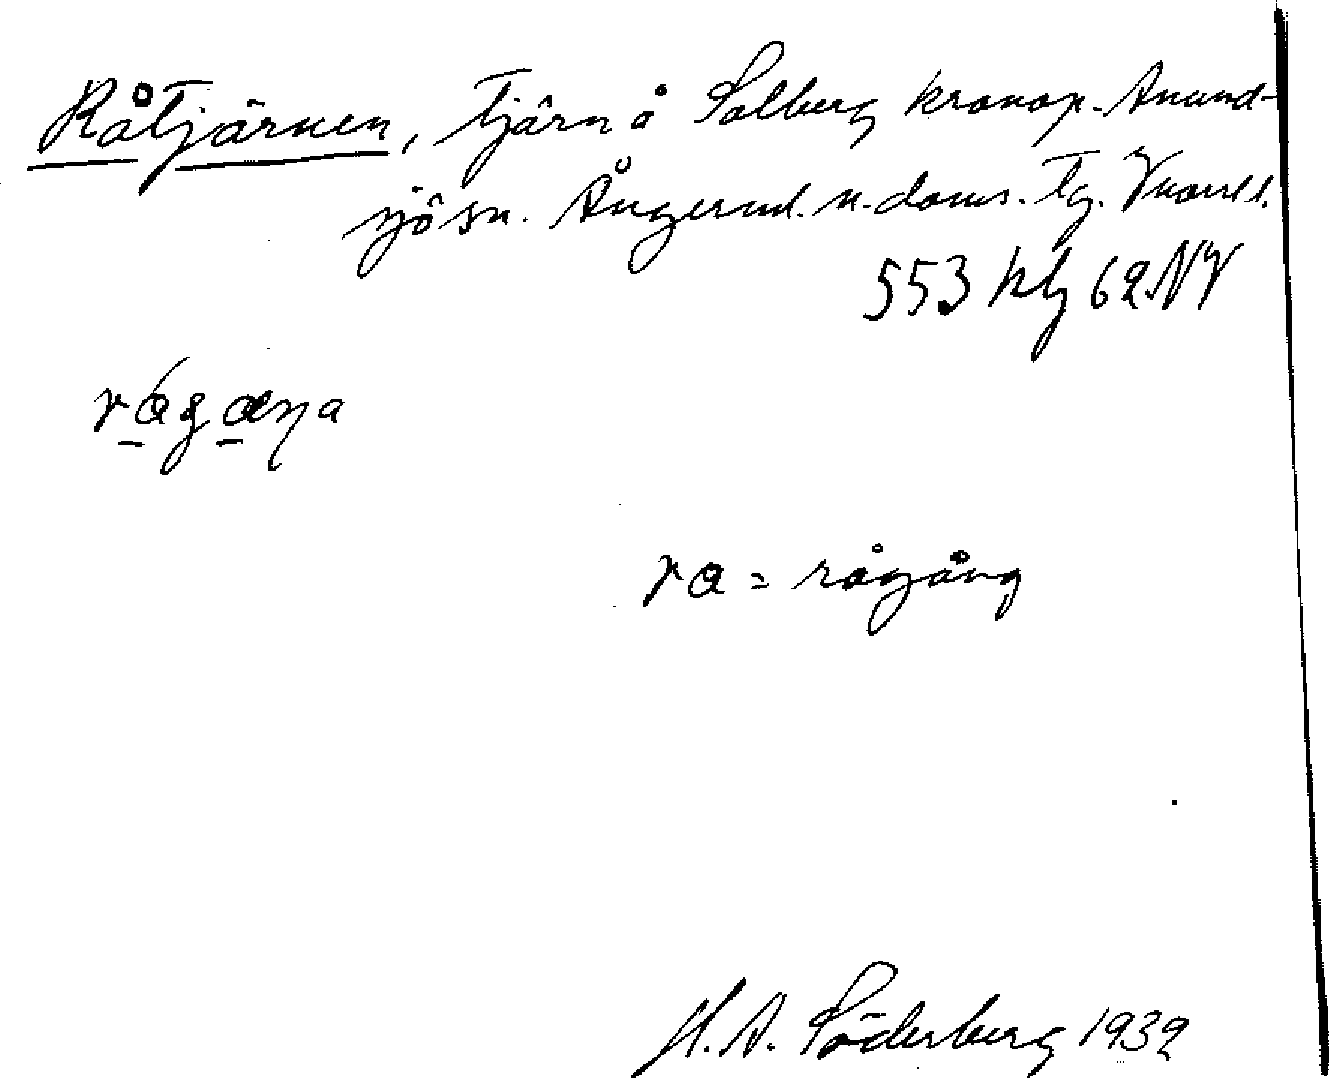 Råtjärnen, tjärn å Solberg kronop. Anund-
sjö sn. Ångerml. n. doms. tg. Vnorrl l.
553 kbl 62 NV
rågæna
ra = rågång
H. A. Söderberg 1932